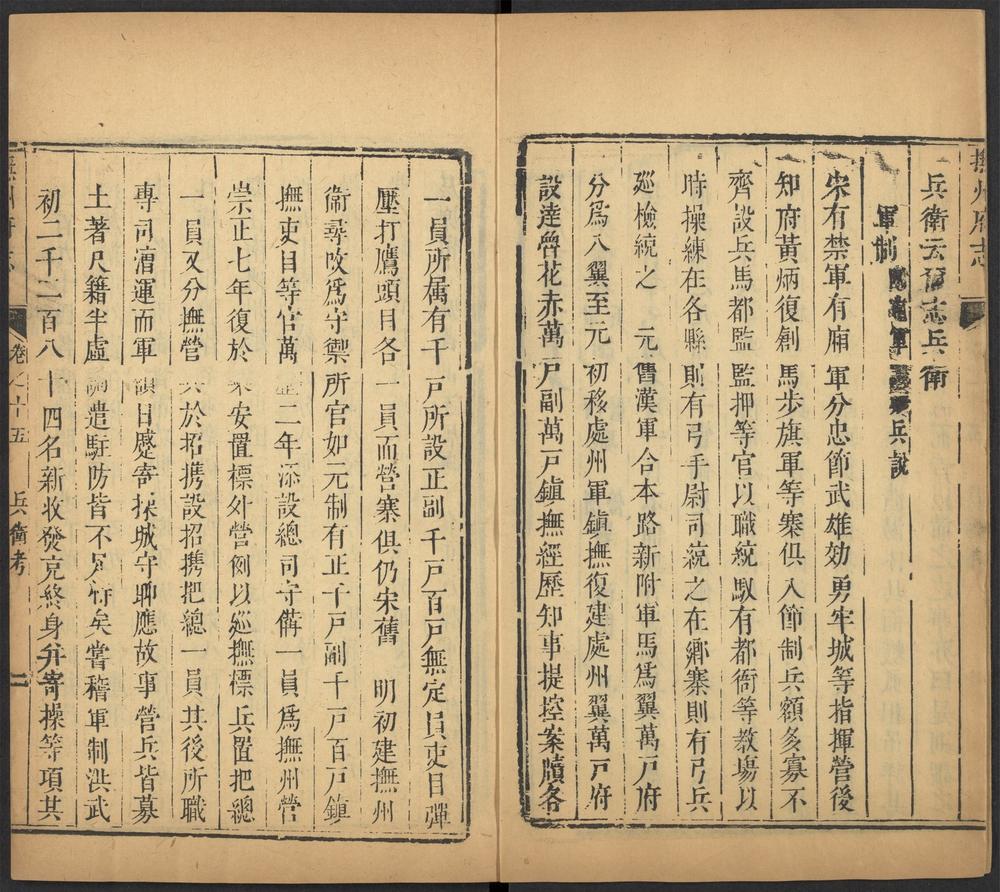 撫州府志
兵衛云舊志兵衛
軍制
兵說
宋有禁軍有廂軍分忠節武雄効勇牢城等指揮營後
知府黃炳復創馬步旗軍等寨俱入節制兵額多寡不
齊設兵馬都監監押等官以職統馭有都衙等教塲以
時操練在各縣則有弓手尉司統之在鄉寨則有弓兵
廵檢統之 元舊漢軍合本路新附軍馬爲翼萬戸府
分爲八翼至元初移處州軍鎮撫復建處州翼萬戸府
設達魯花赤萬戸副萬戸鎮撫經歷知事提控案牘各
一員所属有千戸所設正副千戸百戸無定員吏目彈
壓打鷹頭目各一員而營寨俱仍宋舊 明初建撫州
衛尋改爲守禦所官如元制有正千戸副千戸百戸鎮
撫吏目等官萬二年添設總司守備一員爲撫州營
崇正七年復於安置標外營例以廵撫標兵置把總
一員又分撫營於招携設招携把總一員其後所職
專司漕運而軍日蹙寄操城守聊應故事營兵皆募
土著尺籍半虛遣駐防皆不足恃矣嘗稽軍制洪武
初二千二百八十四名新收發克終身并寄操等項共
撫州府志
卷之十五
兵衛考
一